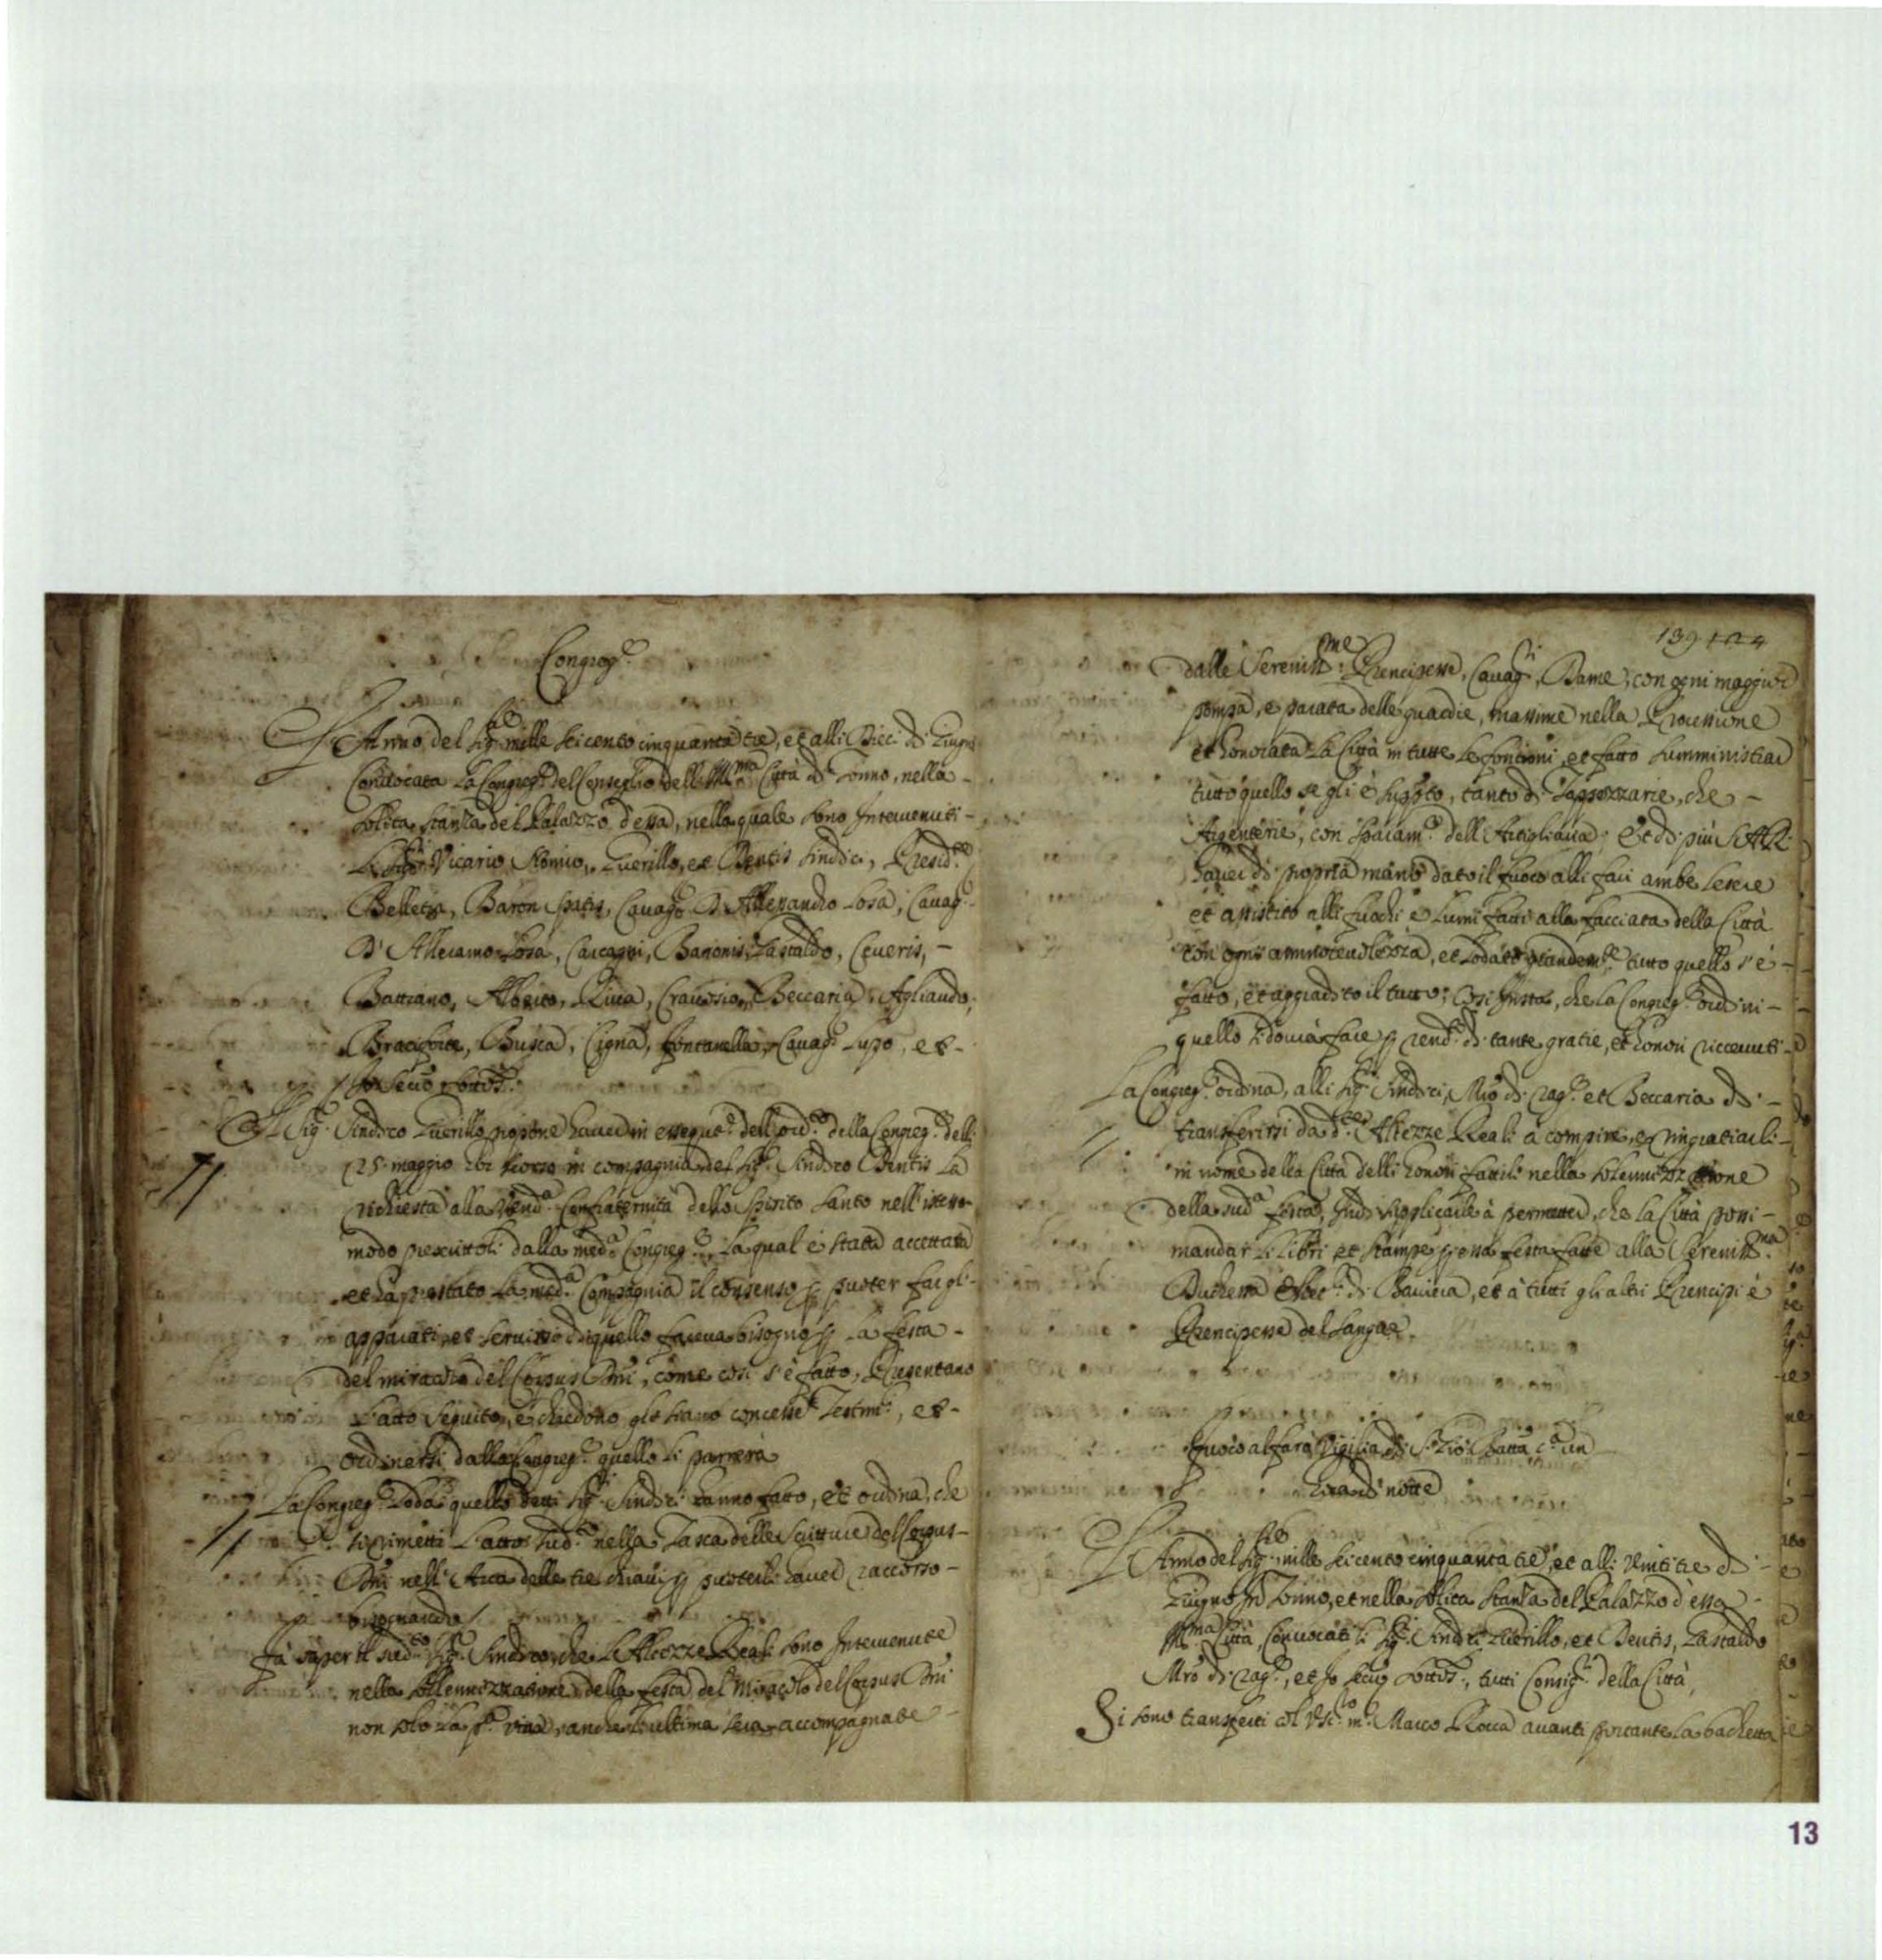 Congreg.e
L'Anno del Sig.re mille seicento cinquanta tre, et alli dieci di Giugno
Convocata La Congreg.e del Conseglio dell' Ill.ma Città di Torino, nella -
solita stanza del Palazzo d'essa, nella quale sono Intervenuti -
Li Sig.ri Vicario Nomio, Querillo, et Bentis Sindici, Presid.te
Belletia, Baron Spatis, Cavag.e D. Allessandro Losa, Cavag.e
D' Alleramo Losa, Carcagni, Baronis, Gastaldo, Ceveris, -
Battiano, Riva, Cravosio, Beccaria, Agliaudo,
Braciforte, Busca, Cigna, Fontanella, Cavag.e Lupo, et -
Io Secr.o sottos.
Il Sig. Sindico Querillo propone haver in essequ.e dell' ord.o della Congreg.e delli
25 maggio scorso in compagnia del Sig. Sindico Bentis la
richiesta alla Vend.a Confraternità dello Spirito Santo nell' istesso
modo prescrittoli dalla med.a Congreg.e, La qual è stata accettata
et ha prestato la med.a Compagnia il consenso p puoter far gl'
apparati, et servirsi di quello faceva bisogno p La festa -
del miracolo del Corpus Dñi, come così s'è fatto, Presentano
L'atto seguito, e chiedono gle siano concesse Testm.li, et -
ordinarsi dalla Congreg.e quello li parrerà
La Congreg.e Loda quello detti Sig.ri Sindici hanno fatto, et ordina, che
si rimetti L'atto sud.o nella Tasca delle Scritture del Corpus -
Dñi nell' Arca delle tre chiavi p puoterli haver raccorso -
bisognando
Fà saper il sud.to Sig. Sindico, che Le Altezze Reali sono Intervenute
nella sollennizzatione della festa del Miracolo del Corpus Dñi
non solo la p.a, anche L'ultima sera accompagnate -
139 124
dalle Sereniss.me Prencipesse, Cavag.ri, Dame, con ogni maggior
pompa, e parata delle guardie, massime nella Processione
et honorata La Città in tutte Le fontioni, et fatto sumministrar
tutto quello se gli è supp.to, tanto di Tappezzarie, che -
Argenterie, con sparam.o dell' Artigliaria, Et di più S.A.R.
haver di propria mano dato il fuoco alli fari ambe Le sere
et assistito alli fuochi e Lumi fatti alla facciata della Città
con ogni ammorevolezza, et Lodato grandem.te tutto quello s'è -
fatto, et aggradito il tutto; Così Insta, che La Congreg.e ordini -
quello si dovrà fare p rend.e di tante gratie, et honori riccevuti -
La Congreg.e ordina, alli Sig.ri Sindici, Mro di rag.e et Beccaria di -
transferirsi da d.te Altezze Reali a compire, e ringratiarli -
in nome della Città delli honori fattili nella solennizzatione
della sud.a festa, Indi supplicarle à permetter, che la Città possi -
mandar li Libri et stampe p essa festa fatte alla Sereniss.ma
Duchessa Elet.e di Baviera, et à tutti gli altri Prencipi e
Prencipesse del sangue.
Fuoco al farà Vigilia di S. Gio Batta c.a un
hora di notte
L'Anno del Sig.re mille seicento cinquanta tre, et alli vinti tre di -
Giugno In Torino, et nella solita stanza del Palazzo d'essa -
Ill.ma Città, Convocati li Sig.ri Sindici Querillo, et Bentis, Gastaldo
Mro di rag.e, et Io Secr.o sottos., tutti Consig.ri della Città,
Si sono transferti col m. Marco Rocca avanti portante La bachetta
13